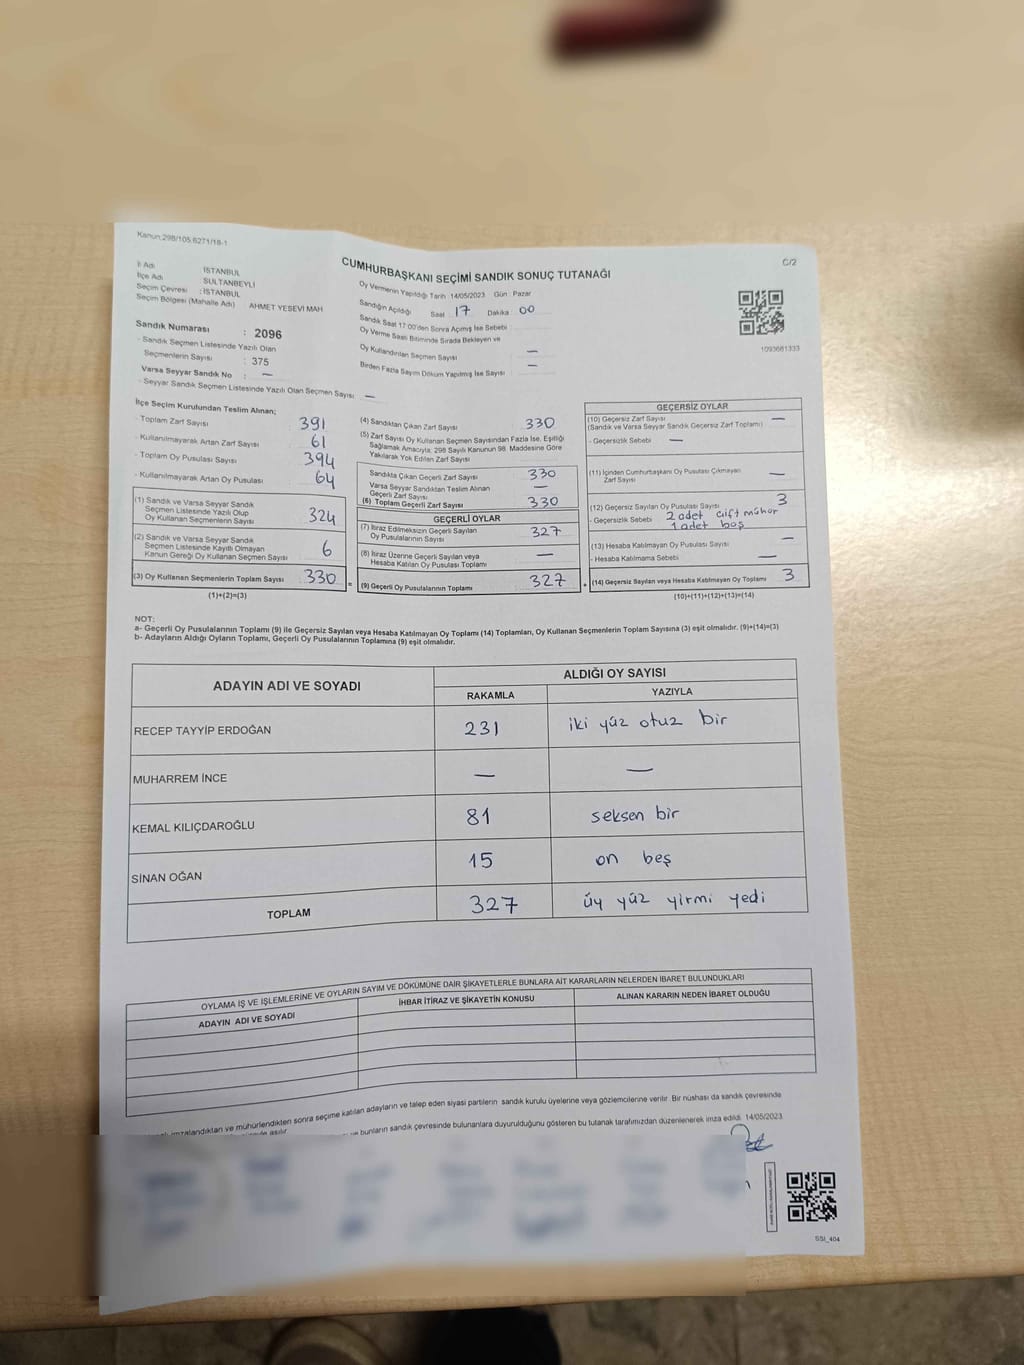 Kanun:298/105.6271/18-1
C/2
CUMHURBAŞKANI SEÇİMİ SANDIK SONUÇ TUTANAĞI
İl Adı İSTANBUL
İlçe Adı SULTANBEYLİ
Seçim Çevresi : İSTANBUL
Seçim Bölgesi (Mahalle Adı) AHMET YESEVİ MAH
Sandık Numarası : 2096
- Sandık Seçmen Listesinde Yazılı Olan
Seçmenlerin Sayısı : 375
Varsa Seyyar Sandık No : —
- Seyyar Sandık Seçmen Listesinde Yazılı Olan Seçmen Sayısı —
Oy Vermenin Yapıldığı Tarih 14/05/2023 Gün : Pazar
Sandığın Açıldığı Saat 17 Dakika 00
Sandık Saat 17:00'den Sonra Açılmış İse Sebebi
Oy Verme Saati Bitiminde Sırada Bekleyen ve
Oy Kullandırılan Seçmen Sayısı —
Birden Fazla Sayım Döküm Yapılmış İse Sayısı —
1093681333
İlçe Seçim Kurulundan Teslim Alınan;
- Toplam Zarf Sayısı 391
- Kullanılmayarak Artan Zarf Sayısı 61
- Toplam Oy Pusulası Sayısı 394
- Kullanılmayarak Artan Oy Pusulası 64
(1) Sandık ve Varsa Seyyar Sandık
Seçmen Listesinde Yazılı Olup
Oy Kullanan Seçmenlerin Sayısı 324
(2) Sandık ve Varsa Seyyar Sandık
Seçmen Listesinde Kayıtlı Olmayan
Kanun Gereği Oy Kullanan Seçmen Sayısı 6
(3) Oy Kullanan Seçmenlerin Toplam Sayısı 330 =
(1)+(2)=(3)
(4) Sandıktan Çıkan Zarf Sayısı 330
(5) Zarf Sayısı Oy Kullanan Seçmen Sayısından Fazla İse, Eşitliği
Sağlamak Amacıyla; 298 Sayılı Kanunun 98. Maddesine Göre
Yakılarak Yok Edilen Zarf Sayısı
Sandıkta Çıkan Geçerli Zarf Sayısı 330
Varsa Seyyar Sandıktan Teslim Alınan
Geçerli Zarf Sayısı —
(6) Toplam Geçerli Zarf Sayısı 330
GEÇERLİ OYLAR
(7) İtiraz Edilmeksizin Geçerli Sayılan
Oy Pusulalarının Sayısı 327
(8) İtiraz Üzerine Geçerli Sayılan veya
Hesaba Katılan Oy Pusulası Toplamı —
(9) Geçerli Oy Pusulalarının Toplamı 327 +
GEÇERSİZ OYLAR
(10) Geçersiz Zarf Sayısı —
(Sandık ve Varsa Seyyar Sandık Geçersiz Zarf Toplamı)
- Geçersizlik Sebebi —
(11) İçinden Cumhurbaşkanı Oy Pusulası Çıkmayan
Zarf Sayısı —
(12) Geçersiz Sayılan Oy Pusulası Sayısı 3
- Geçersizlik Sebebi 2 adet çift mühür
1 adet boş
(13) Hesaba Katılmayan Oy Pusulası Sayısı —
- Hesaba Katılmama Sebebi —
(14) Geçersiz Sayılan veya Hesaba Katılmayan Oy Toplamı 3
(10)+(11)+(12)+(13)=(14)
NOT:
a- Geçerli Oy Pusulalarının Toplamı (9) ile Geçersiz Sayılan veya Hesaba Katılmayan Oy Toplamı (14) Toplamları, Oy Kullanan Seçmenlerin Toplam Sayısına (3) eşit olmalıdır. (9)+(14)=(3)
b- Adayların Aldığı Oyların Toplamı, Geçerli Oy Pusulalarının Toplamına (9) eşit olmalıdır.
ADAYIN ADI VE SOYADI
ALDIĞI OY SAYISI
RAKAMLA YAZIYLA
RECEP TAYYİP ERDOĞAN 231 iki yüz otuz bir
MUHARREM İNCE — —
KEMAL KILIÇDAROĞLU 81 seksen bir
SİNAN OĞAN 15 on beş
TOPLAM 327 üy yüz yirmi yedi
OYLAMA İŞ VE İŞLEMLERİNE VE OYLARIN SAYIM VE DÖKÜMÜNE DAİR ŞİKAYETLERLE BUNLARA AİT KARARLARIN NELERDEN İBARET BULUNDUKLARI
ADAYIN ADI VE SOYADI İHBAR İTİRAZ VE ŞİKAYETİN KONUSU ALINAN KARARIN NEDEN İBARET OLDUĞU
imzalandıktan ve mühürlendikten sonra seçime katılan adayların ve talep eden siyasi partilerin sandık kurulu üyelerine veya gözlemcilerine verilir. Bir nüshası da sandık çevresinde
ve bunların sandık çevresinde bulunanlara duyurulduğunu gösteren bu tutanak tarafımızdan düzenlenerek imza edildi. 14/05/2023
SSI_404